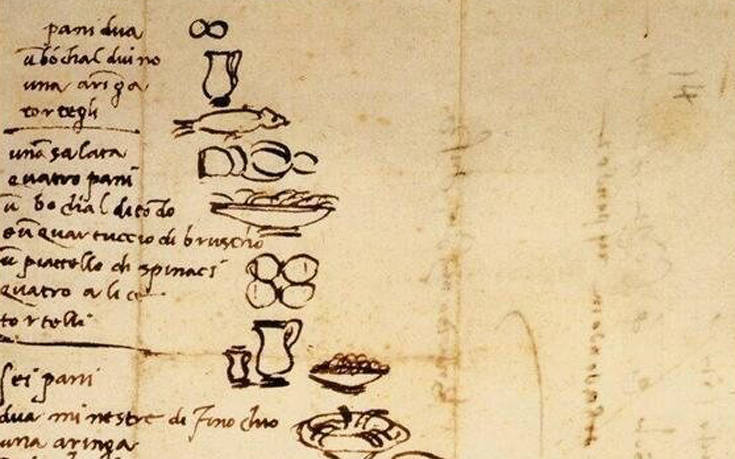 pani dua
ū bochal dvino
una aringa
tortegli
una salata
quatro pani
ū bochal di tōdo
e ū quartuccio di bruscho
ū piattello di spinaci
quatro alice
tortelli
sei pani
dua minestre di finochio
una aringa